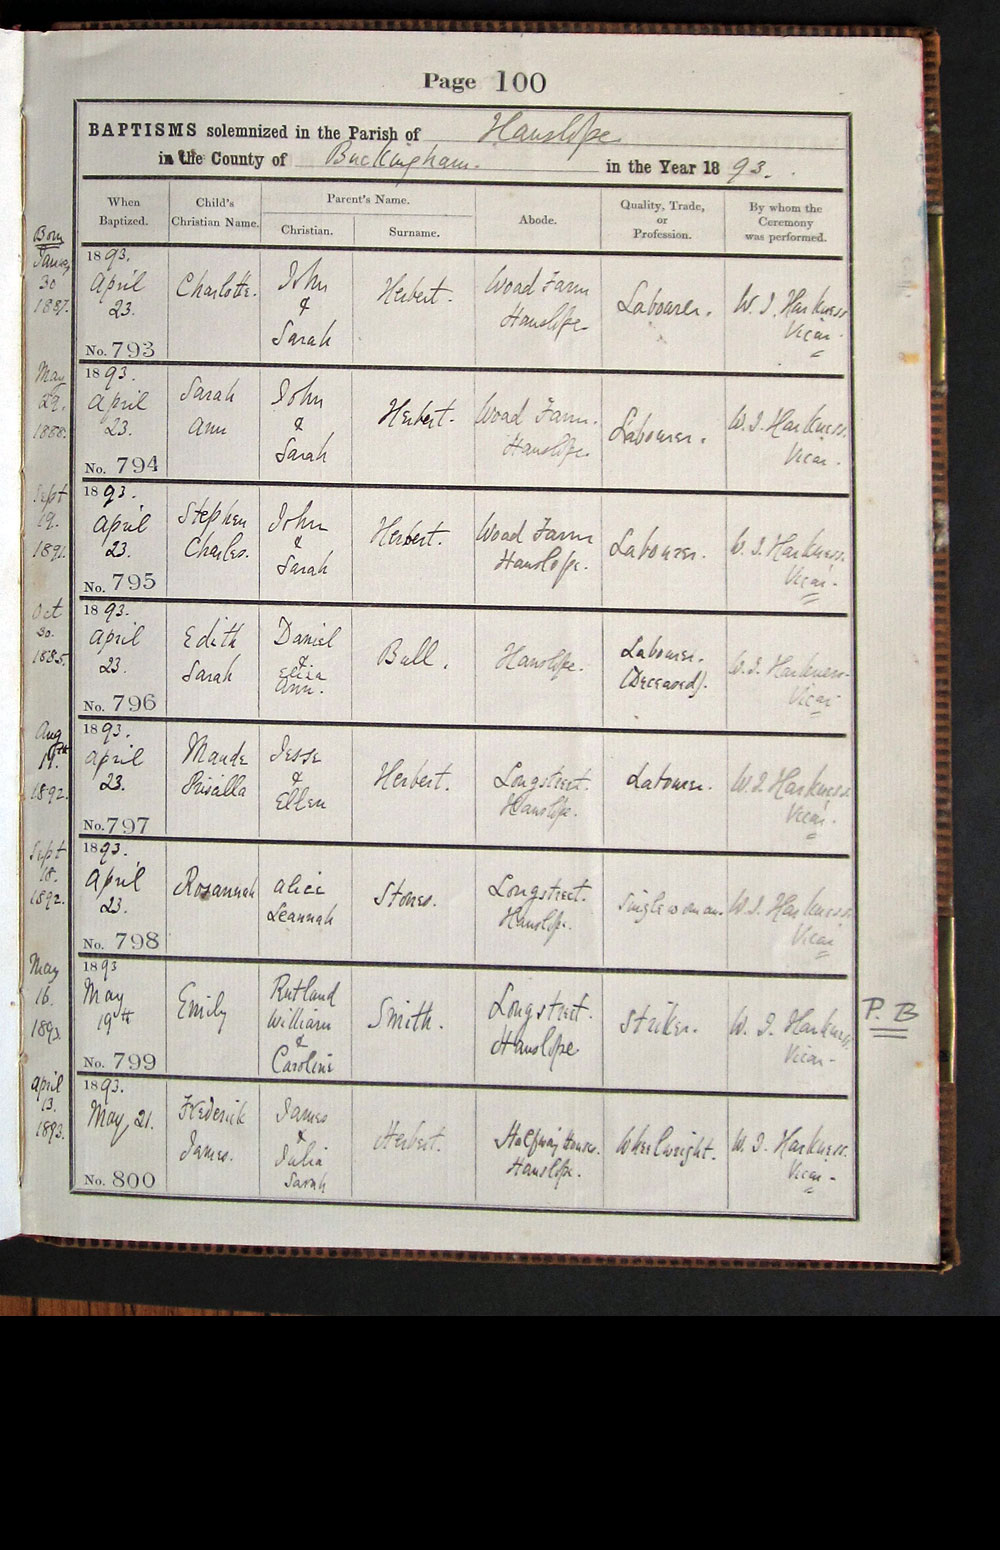 Page 100
BAPTISMS solemnized in the Parish of Hanslope
in the County of Buckingham. in the Year 1893.
When Baptized.
Child's Christian Name.
Parent's Name.
Christian.
Surname.
Abode.
Quality, Trade, or Profession.
By whom the Ceremony was performed.
Born
30
1887.
1893.
April
23.
No. 793
Charlotte.
John
&
Sarah
Herbert.
Wood Farm
Hanslope.
Labourer.
W. J. Harkness
Vicar.
May
29.
1888.
1893.
April
23.
No. 794
Sarah
Ann
John
&
Sarah
Herbert.
Wood Farm.
Hanslope.
Labourer.
W. J. Harkness.
Vicar.
Sept
19.
1891.
1893.
April
23.
No. 795
Stephen
Charles.
John
&
Sarah
Herbert.
Wood Farm
Hanslope.
Labourer.
W. J. Harkness.
Vicar.
Oct
30.
1885.
1893.
April
23.
No. 796
Edith
Sarah
Daniel
&
Eliza
Ann.
Bull.
Hanslope.
Labourer.
(Deceased).
W. J. Harkness
Vicar
Aug
19th
1892.
1893.
April
23.
No. 797
Maude
Prisalla
Jesse
&
Ellen
Herbert.
Longstreet.
Hanslope.
Labourer.
W. J. Harkness
Vicar.
Sept
18.
1892.
1893.
April
23.
No. 798
Rosannah
Alice
Leannah
Stones.
Longstreet.
Hanslope.
Singlewoman.
W. J. Harkness
Vicar
May
16.
1893.
1893
May
19th
No. 799
Emily
Rutland
William
&
Caroline
Smith.
Longstreet.
Hanslope
Striker.
W. J. Harkness.
Vicar.
P. B
April
13.
1893.
1893.
May 21.
No. 800
Frederick
James.
James
&
Julia
Sarah
Herbert.
Halfway Houses.
Hanslope.
Wheelwright.
W. J. Harkness.
Vicar.